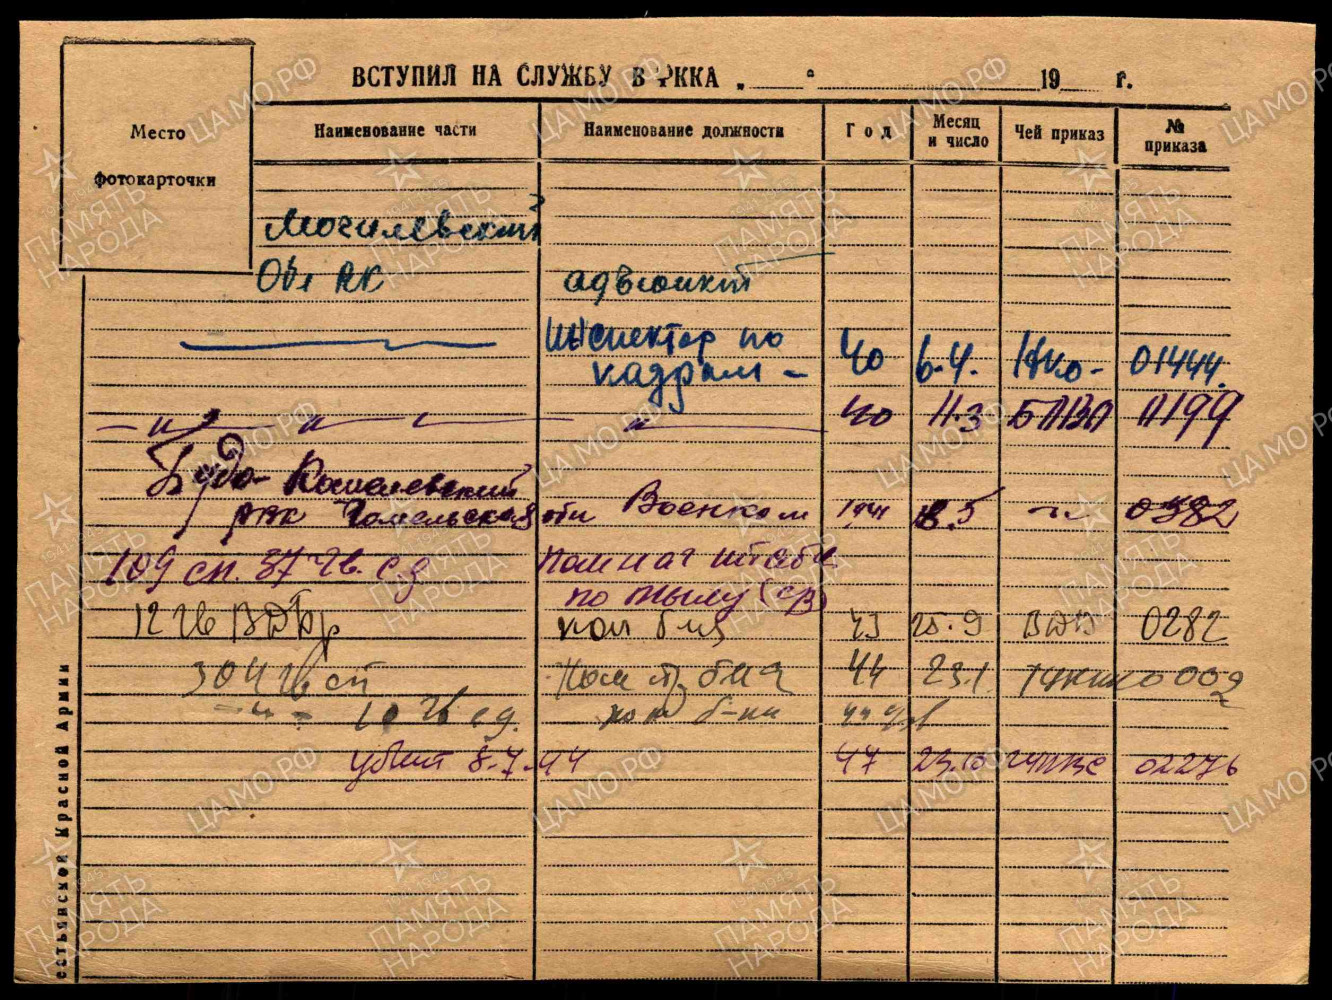 ВСТУПИЛ НА СЛУЖБУ В РККА „ " 19 г.
Место фотокарточки
Наименование части Наименование должности Год Месяц и число Чей приказ № приказа
Могилевский
Обл ВК адъютант
Инспектор по
кадрам - 40 6.4. НКО- 01444.
- " - " 40 11.3 БПВО 0199
Буда-Кошелевский
РВК Гомельской обл Военком 1941 8.5 - " 0382
109 сп. 37 гв. сд Пом нач штаба
по тылу (СД)
12 гв ВДбр ком б-на 43 25.9 ВДВ 0282
304 гв сп Ком б-на 44 23.1. 002
- " - гв сд. ком б-на 44
убит 8.7.44 47 23.10 ГУК ВС 02276
естьянской Красной Армии
ЦАМО.РФ
ПАМЯТЬ НАРОДА
1941-1945